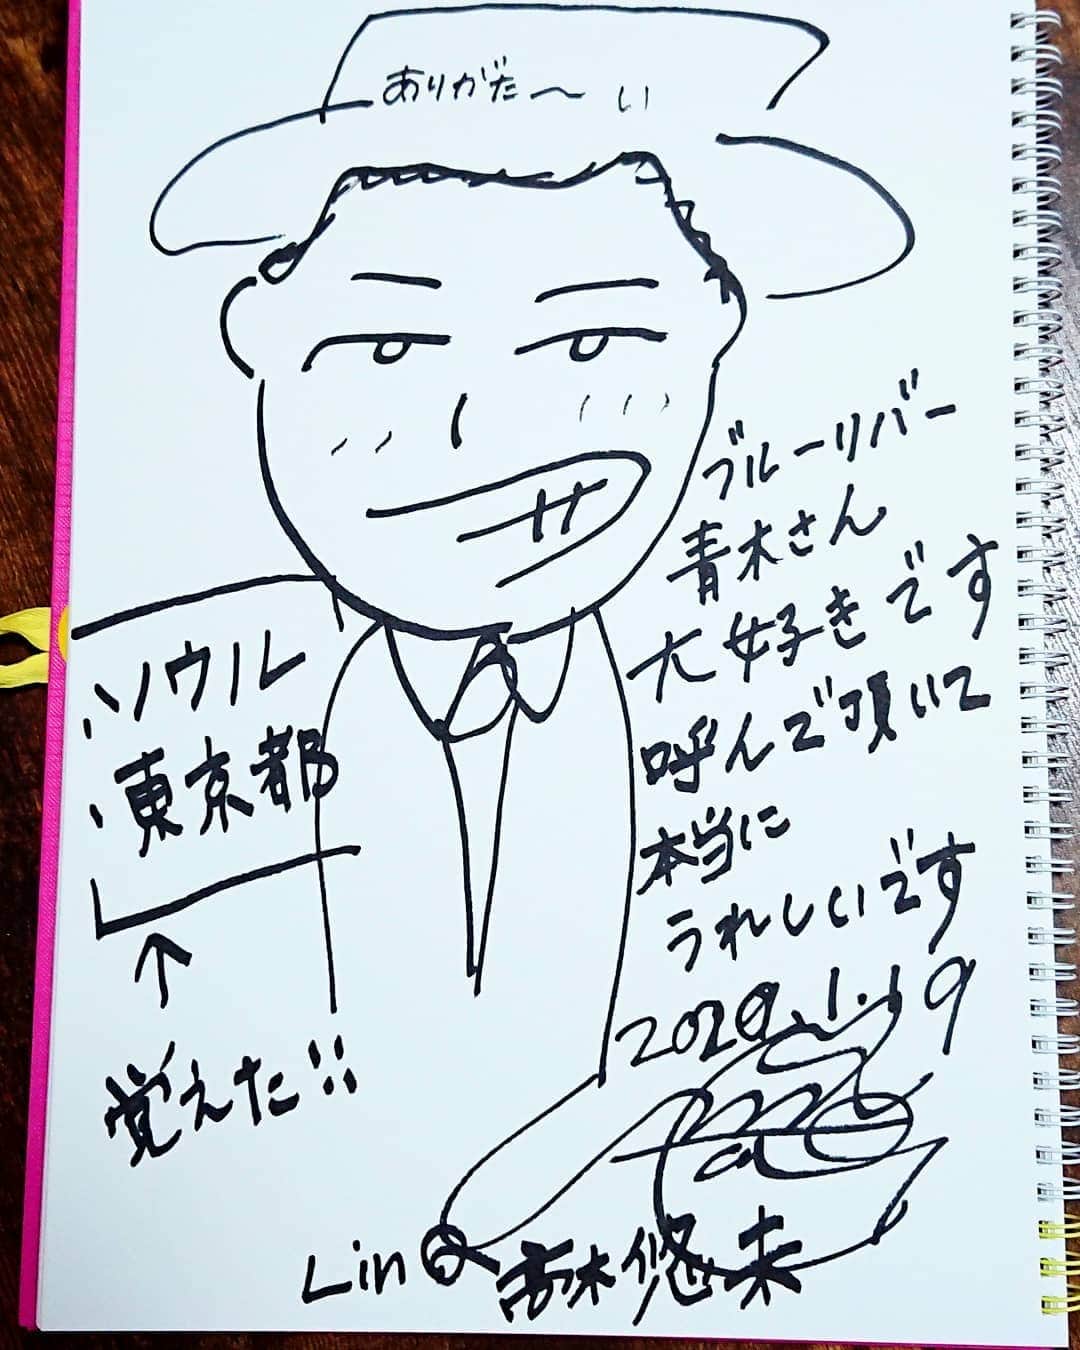 ありがた〜い
ブルーリバー
青木さん
大好きです
呼んで頂いて
本当に
うれしいです
2020.1.19
ソウル
東京都
↑
覚えた!!
LinQ 高木悠未